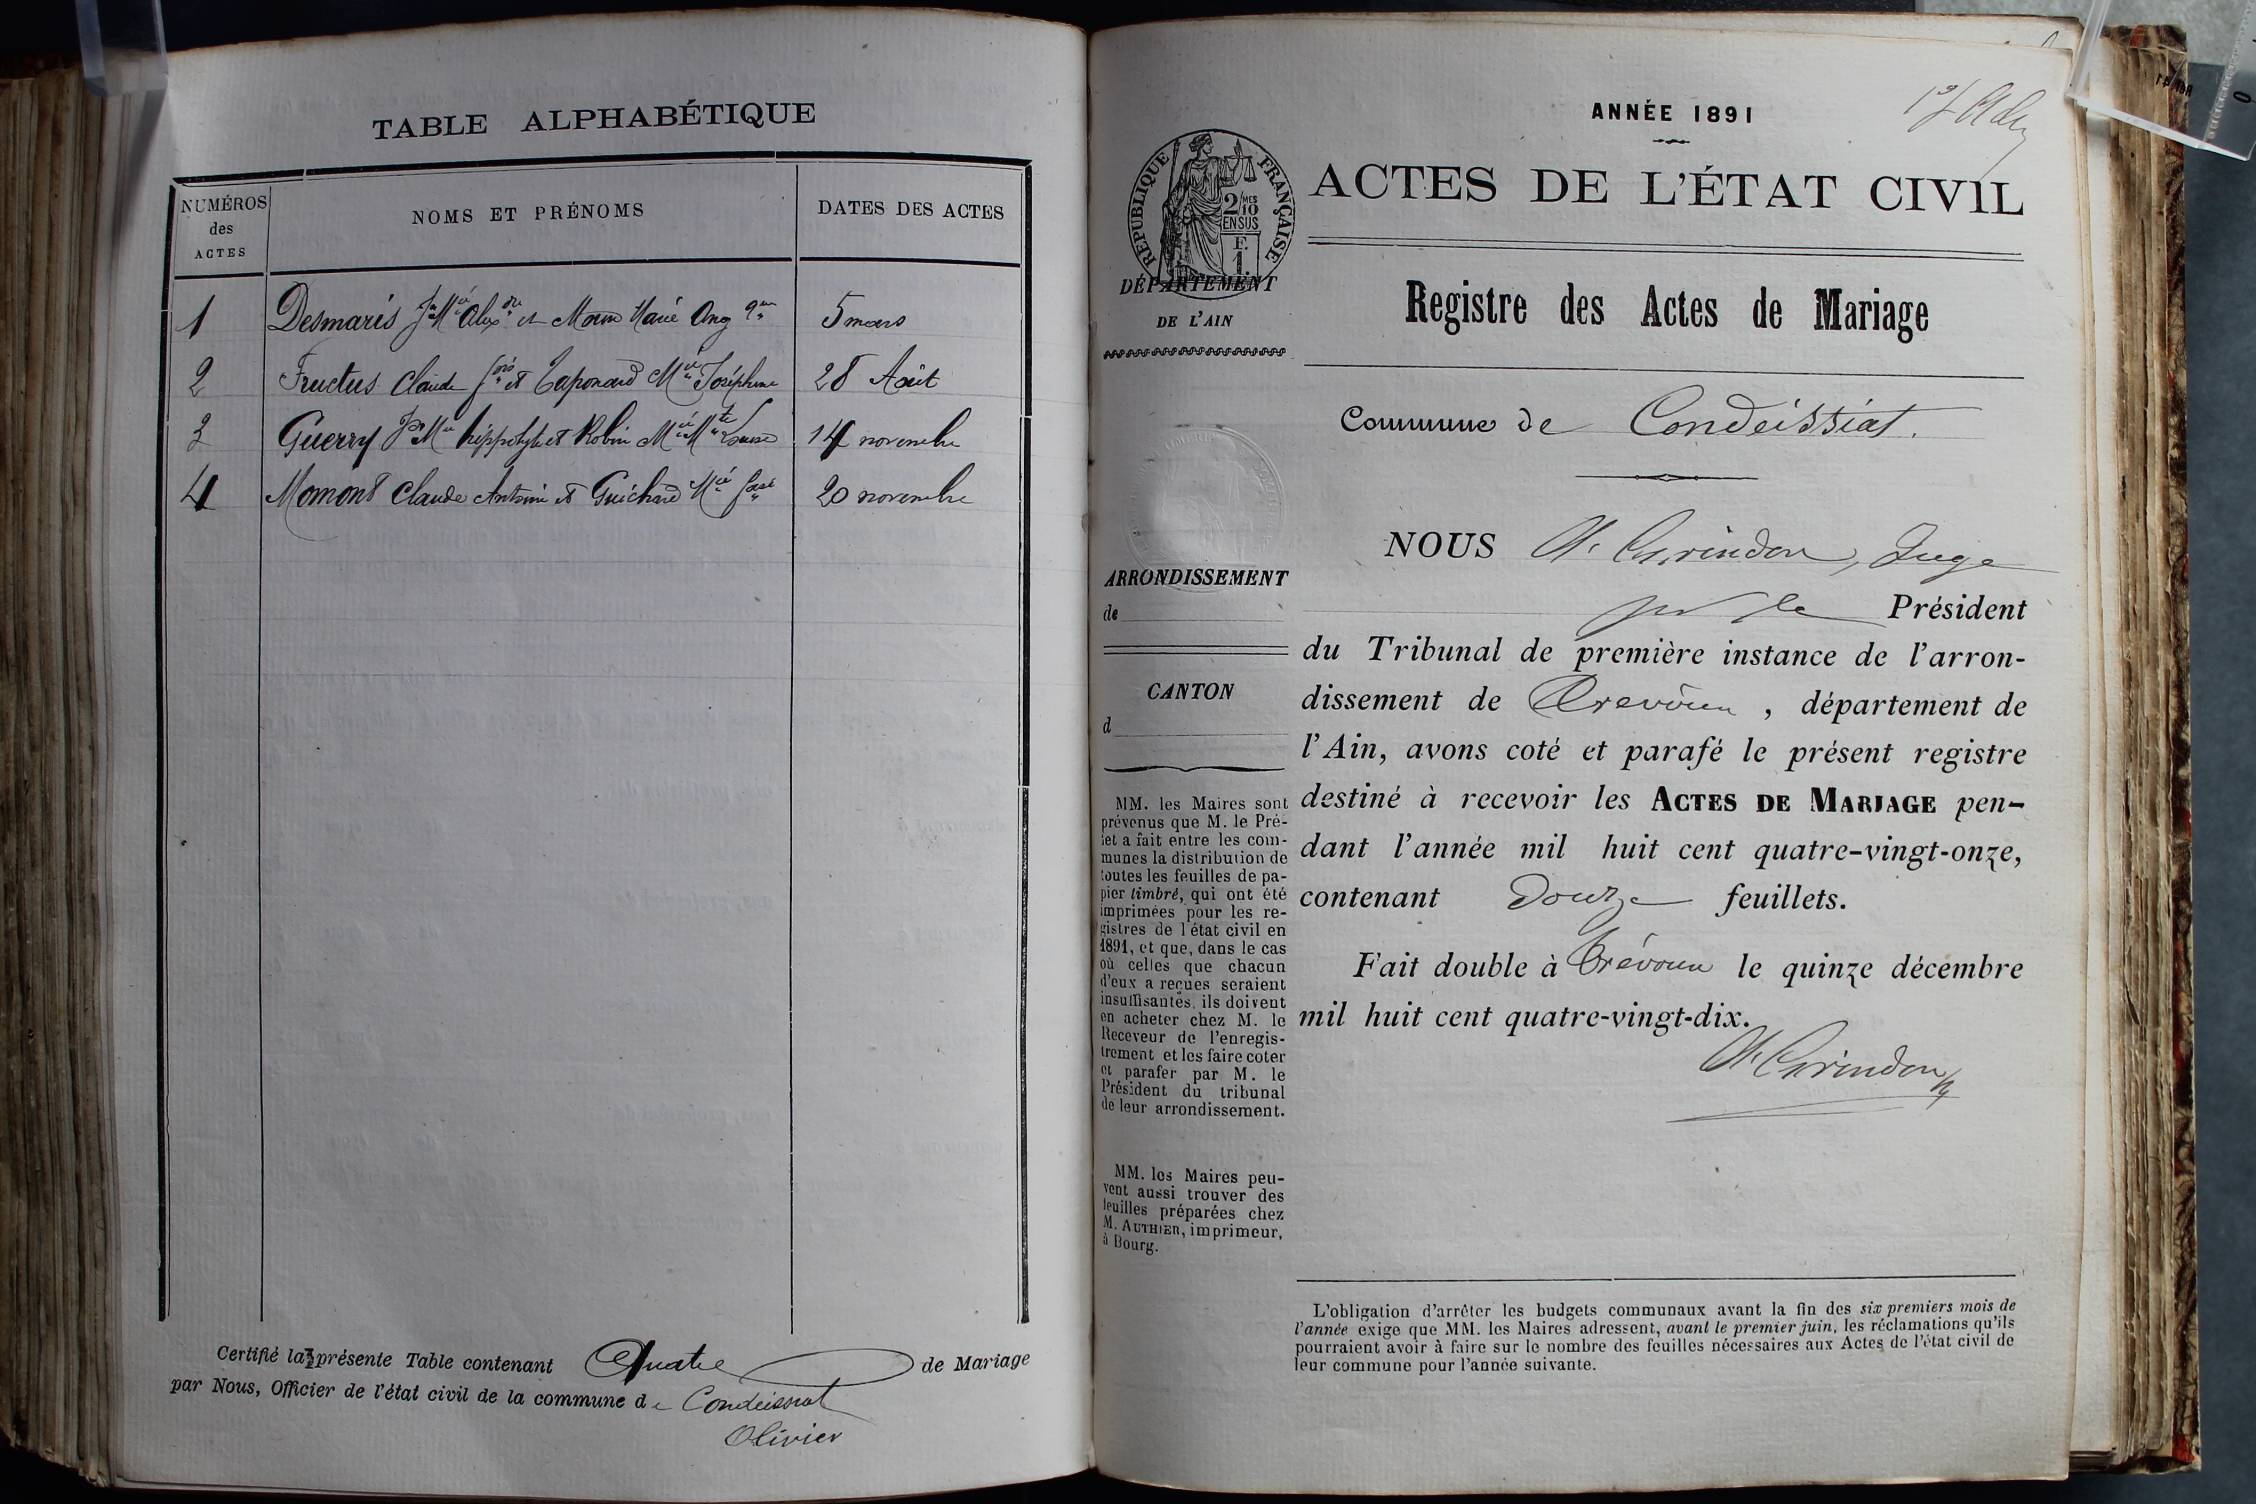 TABLE ALPHABÉTIQUE
NUMÉROS
des
ACTES
NOMS ET PRÉNOMS
DATES DES ACTES
1 Desmaris Jn Mie Alexdre et Morin Marie Ang 5 mars
2 Fructus Claude fçois et Taponard Mie Joséphine 28 Août
3 Guerry Jn Mie hippolyte et Robin Mie Mte Louise 14 novembre
4 Momont Claude Antoine et Guichard Mie fçoise 20 novembre
Certifié la présente Table contenant Quatre de Mariage
par Nous, Officier de l'état civil de la commune de Condeissiat
Olivier
ANNÉE 1891
ACTES DE L'ÉTAT CIVIL
RÉPUBLIQUE FRANÇAISE
2/10MES
EN SUS
F.
1.
DÉPARTEMENT
DE L'AIN
Registre des Actes de Mariage
Commune de Condeissiat.
ARRONDISSEMENT
de
CANTON
d
MM. les Maires sont
prévenus que M. le Pré-
fet a fait entre les com-
munes la distribution de
toutes les feuilles de pa-
pier timbré, qui ont été
imprimées pour les re-
gistres de l'état civil en
1891, et que, dans le cas
où celles que chacun
d'eux a reçues seraient
insuffisantes, ils doivent
en acheter chez M. le
Receveur de l'enregis-
trement et les faire coter
et parafer par M. le
Président du tribunal
de leur arrondissement.
MM. les Maires peu-
vent aussi trouver des
feuilles préparées chez
M. AUTHIER, imprimeur,
à Bourg.
NOUS Grindon, Juge
pr le Président
du Tribunal de première instance de l'arron-
dissement de Trévoux, département de
l'Ain, avons coté et parafé le présent registre
destiné à recevoir les ACTES DE MARIAGE pen-
dant l'année mil huit cent quatre-vingt-onze,
contenant Douze feuillets.
Fait double à Trévoux le quinze décembre
mil huit cent quatre-vingt-dix.
Grindon
L'obligation d'arrêter les budgets communaux avant la fin des six premiers mois de
l'année exige que MM. les Maires adressent, avant le premier juin, les réclamations qu'ils
pourraient avoir à faire sur le nombre des feuilles nécessaires aux Actes de l'état civil de
leur commune pour l'année suivante.